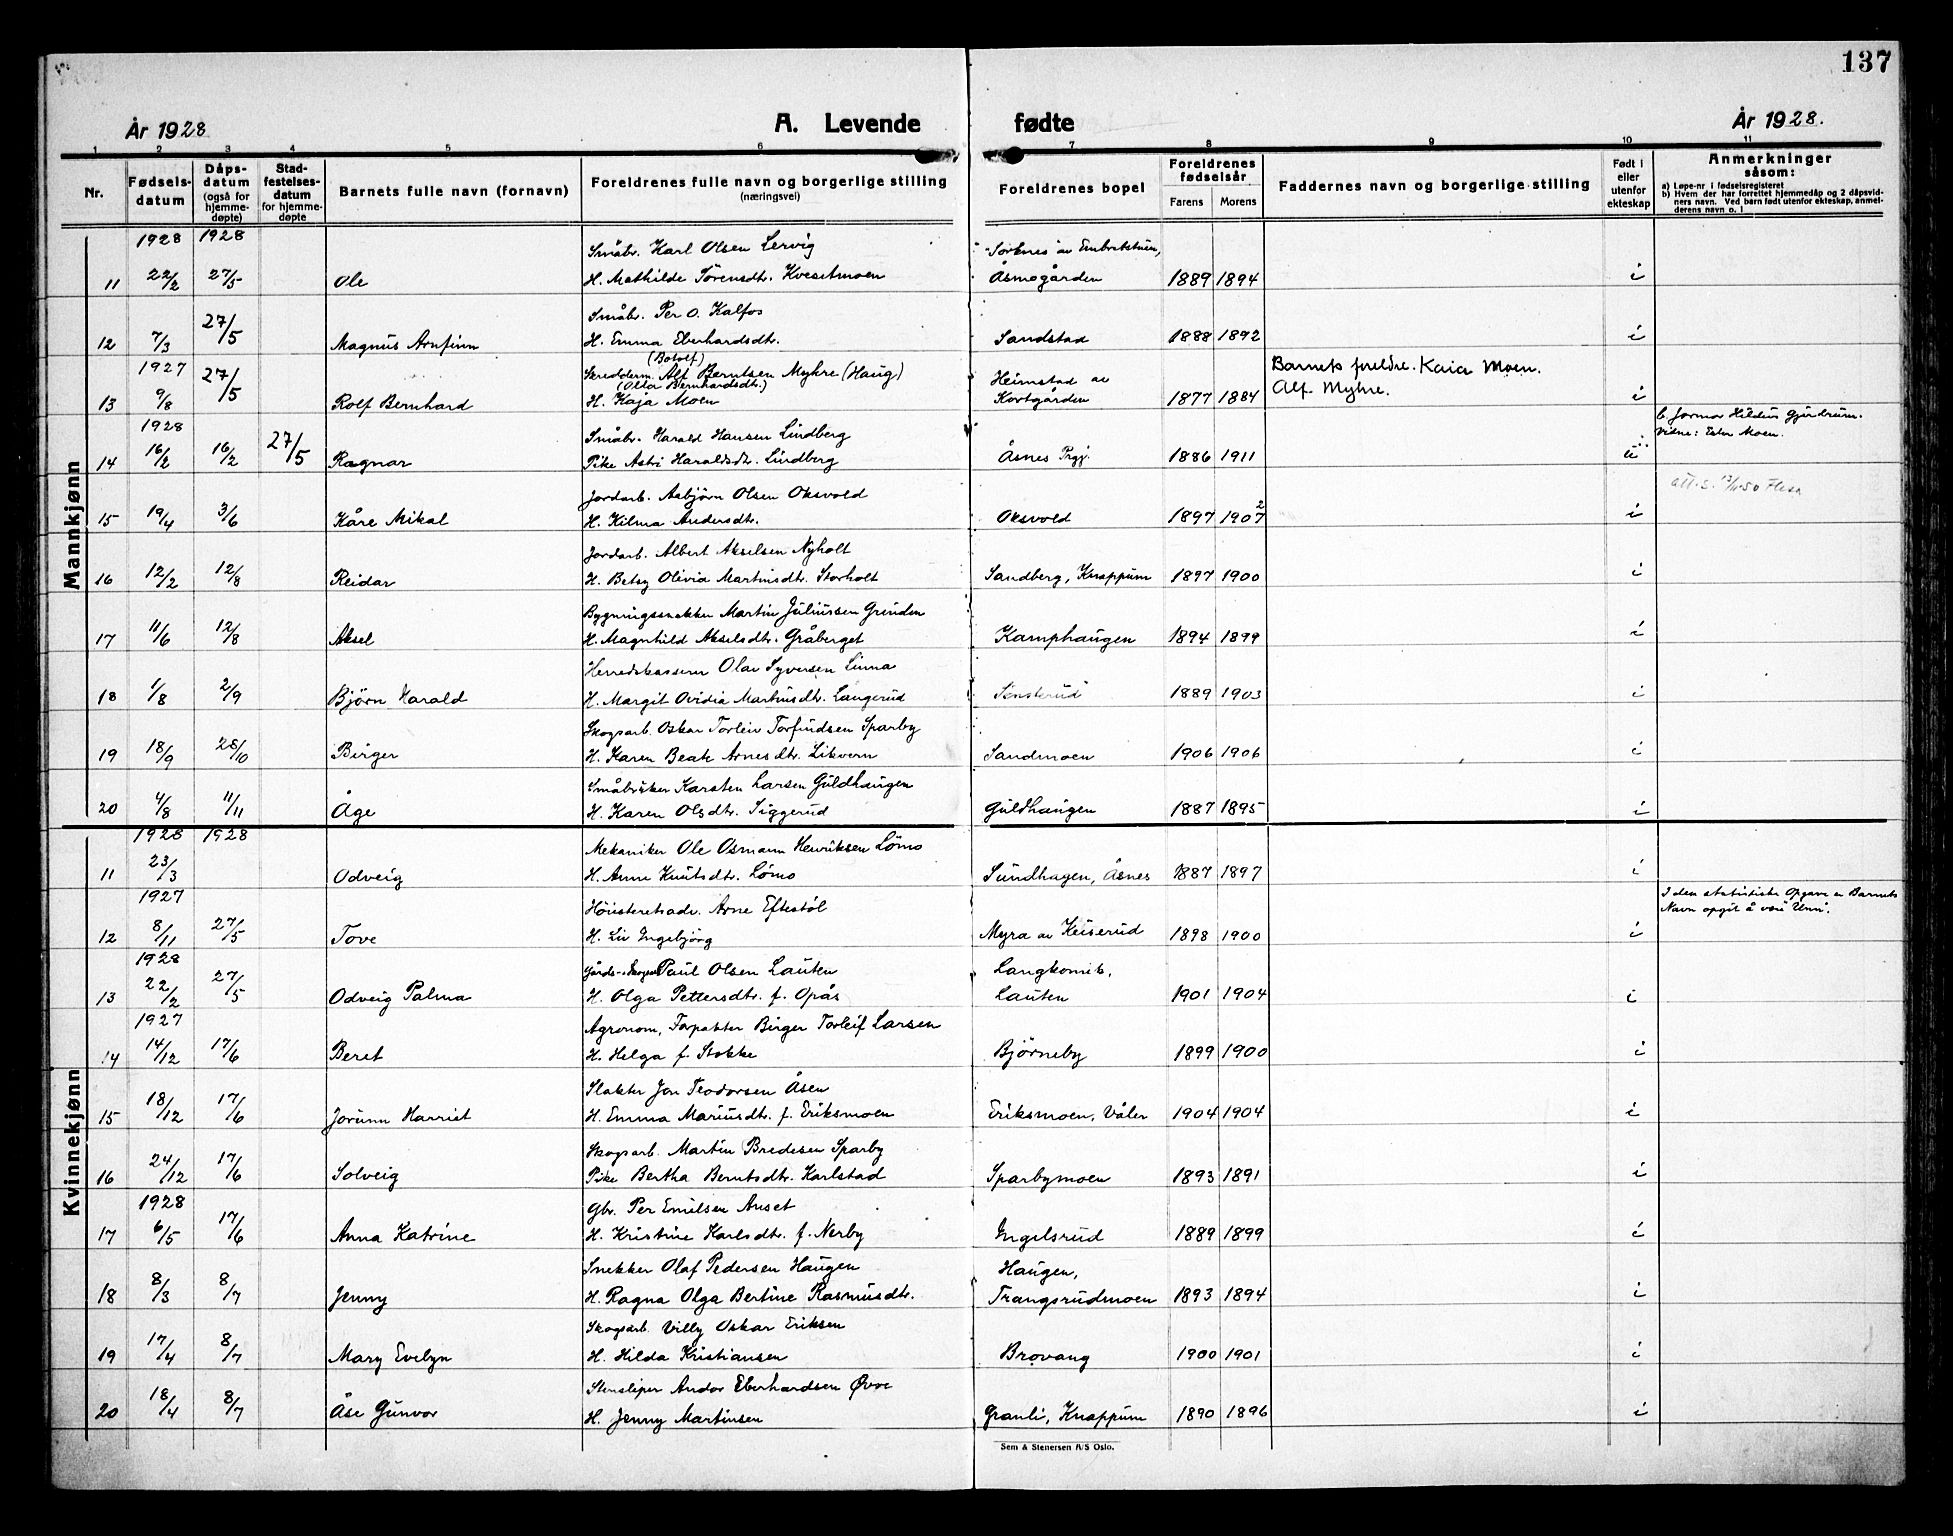 137
År 1928
A. Levende fødte
År 1928.
1 2 3 4 5 6 7 8 9 10 11
Nr.
Fødsels-datum
Dåps-datum (også for hjemme-døpte)
Stad-festelses-datum for hjemme-døpte
Barnets fulle navn (fornavn)
Foreldrenes fulle navn og borgerlige stilling (næringsvei)
Foreldrenes bopel
Foreldrenes fødselsår
Farens Morens
Faddernes navn og borgerlige stilling
Født i eller utenfor ekteskap
Anmerkninger såsom:
a) Løpe-nr i fødselsregisteret
b) Hvem der har forrettet hjemmedåp og 2 dåpsvid-
ners navn. Ved barn født utenfor ekteskap, anmel-
derens navn o. l
Mannkjønn
1928 1928 Småbr. Karl Olsen Lervig "Sorknes" av Embretstun,
11 22/2 27/5 Ole H. Mathilde Sørensdtr. Kvesetmoen Åsmogården 1889 1894 i
Småbr. Per O. Kalfos
12 7/3 27/5 Magnus Arnfinn H. Emma Eberhardsdtr. Sandstad 1888 1892 i
1927 (Botolf)
Skredderm. Alf Berntsen Myhre (Haug) Heimstad av Barnets foreldre. Kaia Moen.
(Olta Bernhardsdtr.)
13 9/8 27/5 Rolf Bernhard H. Kaja Moen Kortgården 1877 1884 Alf Myhre. i
1928 Småbr. Harald Hansen Lindberg b. Jormor Hildur Gjurdrum.
Vidne: Ester Moen.
14 16/2 16/2 27/5 Ragnar Pike Astri Haraldsdtr. Lindberg Åsnes Prgj. 1886 1911 u
Jordarb. Asbjørn Olsen Oksvold att. s. 13/11-50 Flisa
15 19/4 3/6 Kåre Mikal H. Hilma Andersdtr. Oksvold 1897 1907 2 i
Jordarb. Albert Akselsen Nyholt
16 12/2 12/8 Reidar H. Betsy Olivia Martinsdtr. Storholt Sandberg, Knappum 1897 1900 i
Bygningssnekker Martin Juliussen Grinden
17 11/6 12/8 Aksel H. Magnhild Akselsdtr. Gråberget Kamphaugen 1894 1899 i
Herredskasserer Olav Syversen Linna
18 1/8 2/9 Bjørn Harald H. Margit Ovidia Martinsdtr. Langerud Sønsterud 1889 1903 i
Skogsarb. Oskar Torleiv Torfindsen Sparby
19 18/9 28/10 Birger H. Karen Beate Arnesdtr. Likvern Sandmoen 1906 1906 i
Småbruker Karsten Larsen Guldhaugen
20 4/8 11/11 Åge H. Karen Olsdtr. Siggerud Guldhaugen 1887 1895 i
Kvinnekjønn
1928 1928 Mekaniker Ole Osmann Henriksen Lömo
11 23/3 Odveig H. Anne Knutsdtr. Lömo Sundhagen, Åsnes 1887 1897 i
1927 Høiesteretsadv. Arne Eftestöl I den statistiske Opgave er Barnets
Navn opgit å være "Unni".
12 8/11 27/5 Tove H. Liv Ingebjörg Myra av Keiserud 1898 1900 i
1928 Gårds- og skogsarb. Paul Olsen Lauten Langkomib,
13 22/2 27/5 Odveig Palma H. Olga Pettersdtr. f. Opås Lauten 1901 1904 i
1927 Agronom, Forpakter Birger Torleif Larsen
14 14/12 17/6 Beret H. Helga f. Stokke Bjørneby 1899 1900 i
Slakter Jon Teodorsen Åsen
15 18/12 17/6 Jorunn Harriet H. Emma Mariusdtr. f. Eriksmoen Eriksmoen, Våler 1904 1904 i
Skogsarb. Martin Bredesen Sparby
16 24/12 17/6 Solveig Pike Bertha Berntsdtr. Karlstad Sparbymoen 1893 1891 i
1928 Gbr. Per Emilsen Anset
17 6/5 17/6 Anna Katrine H. Kristine Karlsdtr. f. Nerby Ingelsrud 1889 1899 i
Snekker Olaf Pedersen Haugen Haugen,
18 8/3 8/7 Jenny H. Ragna Olga Bertine Rasmusdtr. Trangsrudmoen 1893 1894 i
Skogsarb. Villy Oskar Eriksen
19 17/4 8/7 Mary Evelyn H. Hilda Kristiansen Brovang 1900 1901 i
Stensliper Andor Eberhardsen Øvre
20 18/4 8/7 Åse Gunvor H. Jenny Martinsen Granli, Knappum 1890 1896 i
Sem & Stenersen A/S Oslo.